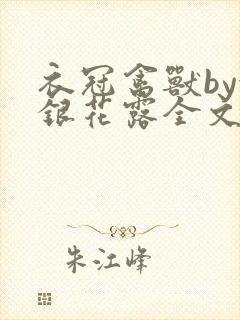 衣冠禽獸by
銀花露全文
朱江峰